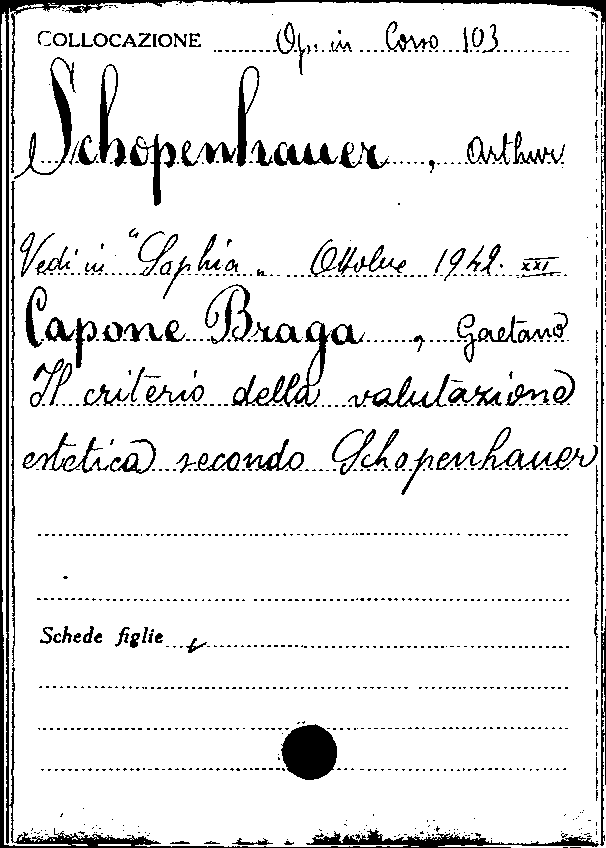 COLLOCAZIONE Op. in Corso 103
Schopenhauer, Arthur
Vedi in "Sophia„ Ottobre 1942. XXI
Capone Braga, Gaetano
Il criterio della valutazione
estetica secondo Schopenhauer
Schede figlie